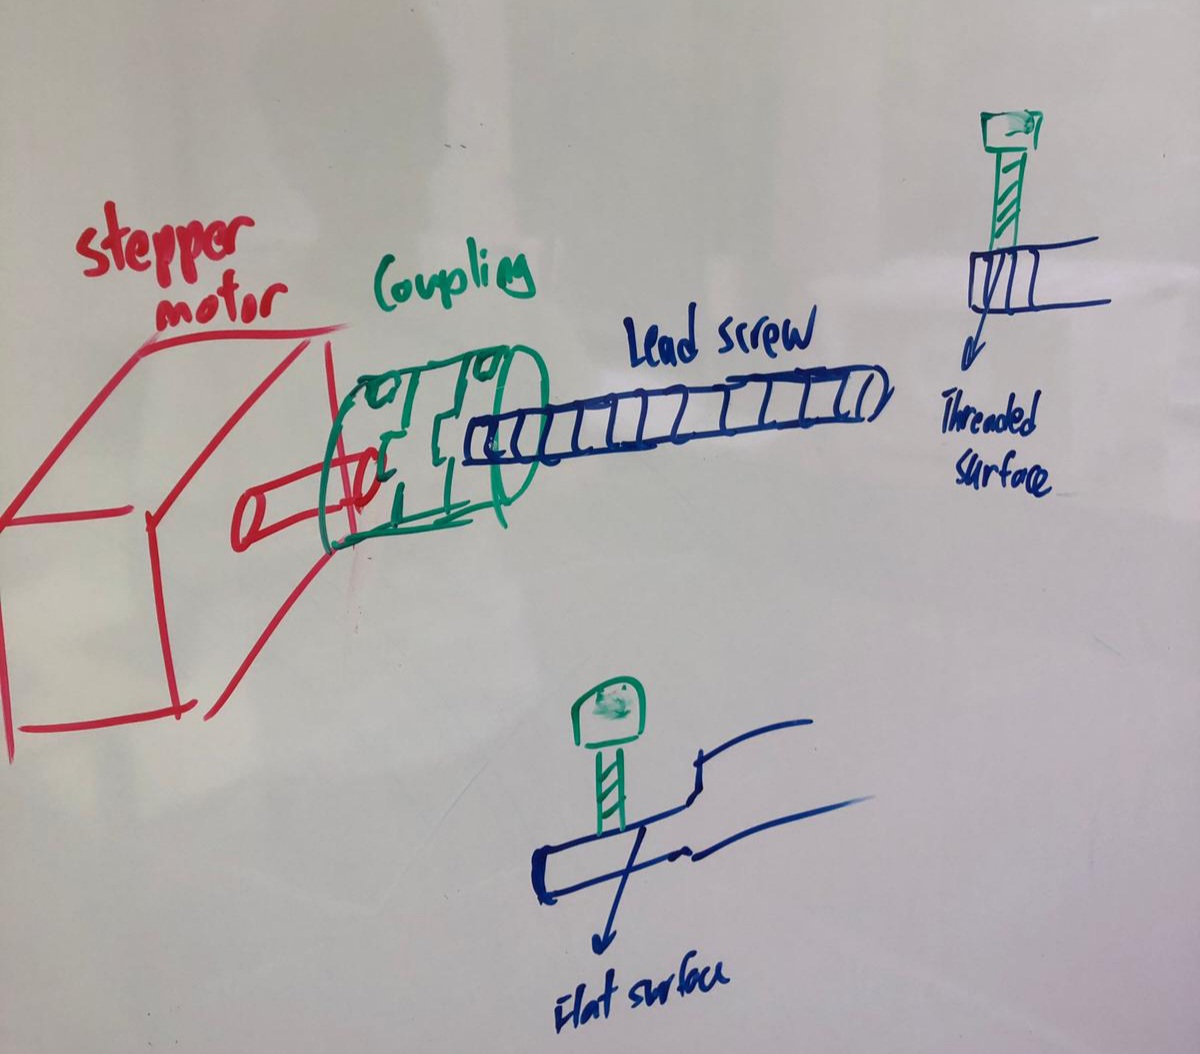 stepper
motor
Coupling
Lead screw
Threaded
surface
Flat surface